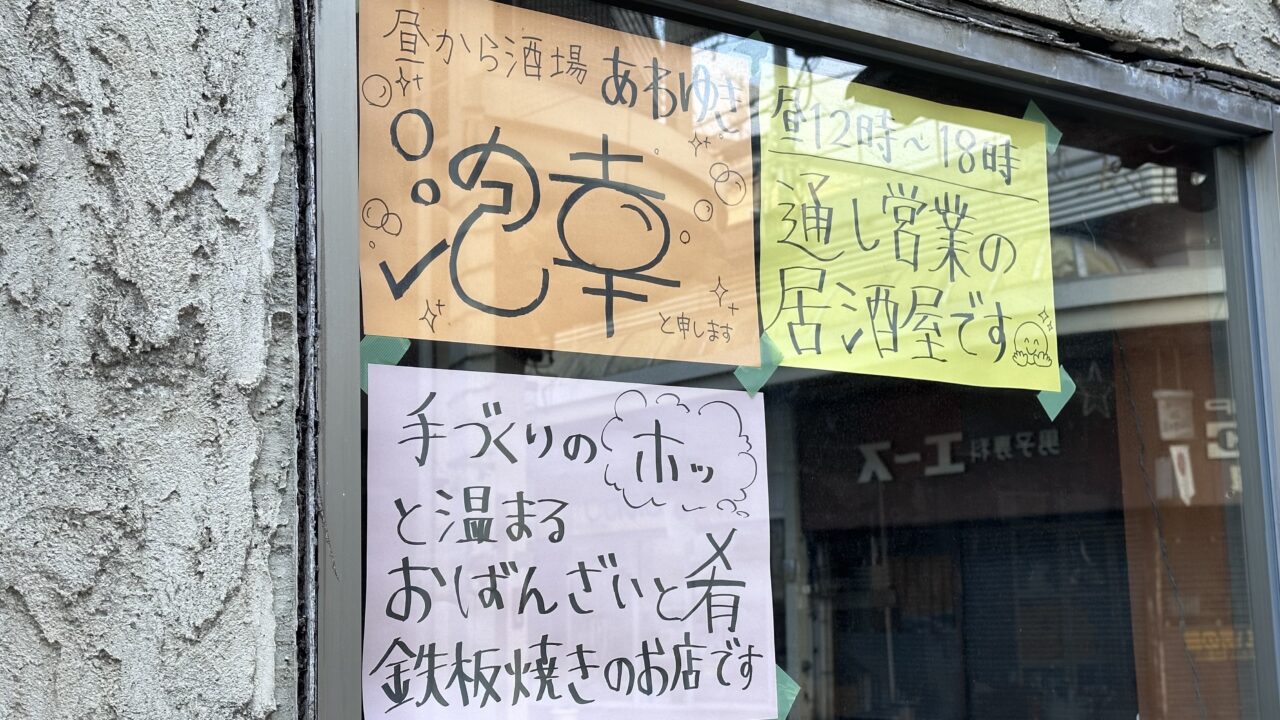 昼から酒場 あわゆき
泡幸
と申します
昼12時~18時
通し営業の
居酒屋です
手づくりの ホッ
と温まる
おばんざいと肴
鉄板焼きのお店です
男子専科 エース